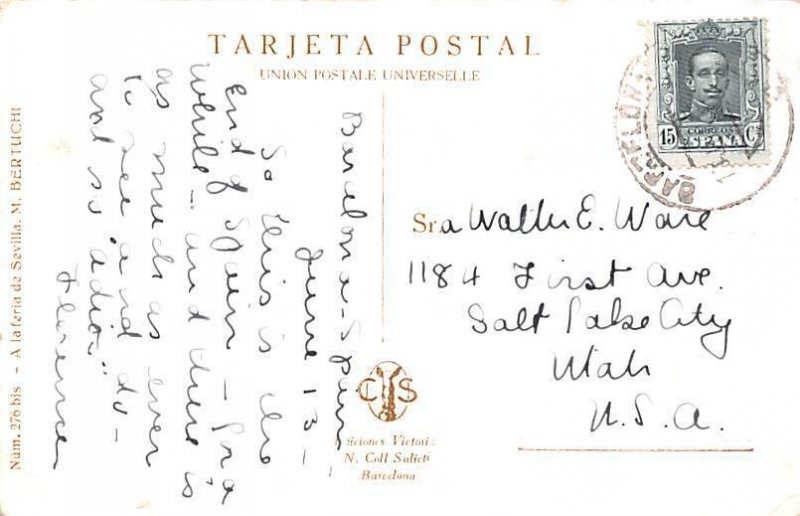 TARJETA POSTAL
UNION POSTALE UNIVERSELLE
Barcelona - Spain
June 13 -
So this is the
End of Spain - for a
while - and there is
as much as ever
to see and do -
and so "adios"
Florence
Núm. 276 bis - A la feria de Sevilla. M. BERTUCHI
15 CORREOS Cs
ESPAÑA
BARCELONA
Sra Walter E. Ware
1184 First Ave.
Salt Lake City
Utah
U.S.A.
C S
Ediciones Victoria
N. Coll Salieti
Barcelona